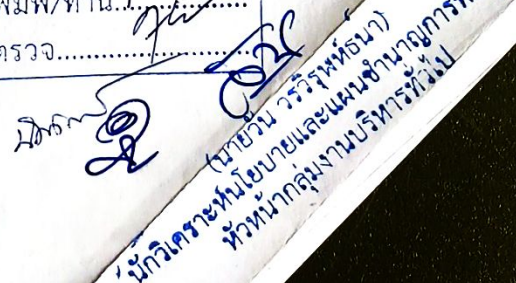 พิมพ์/ทาน
ตรวจ
(นายวัน วรวิรุฬห์ธนา)
นักวิเคราะห์นโยบายและแผนชำนาญการ
หัวหน้ากลุ่มงานบริหารทั่วไป